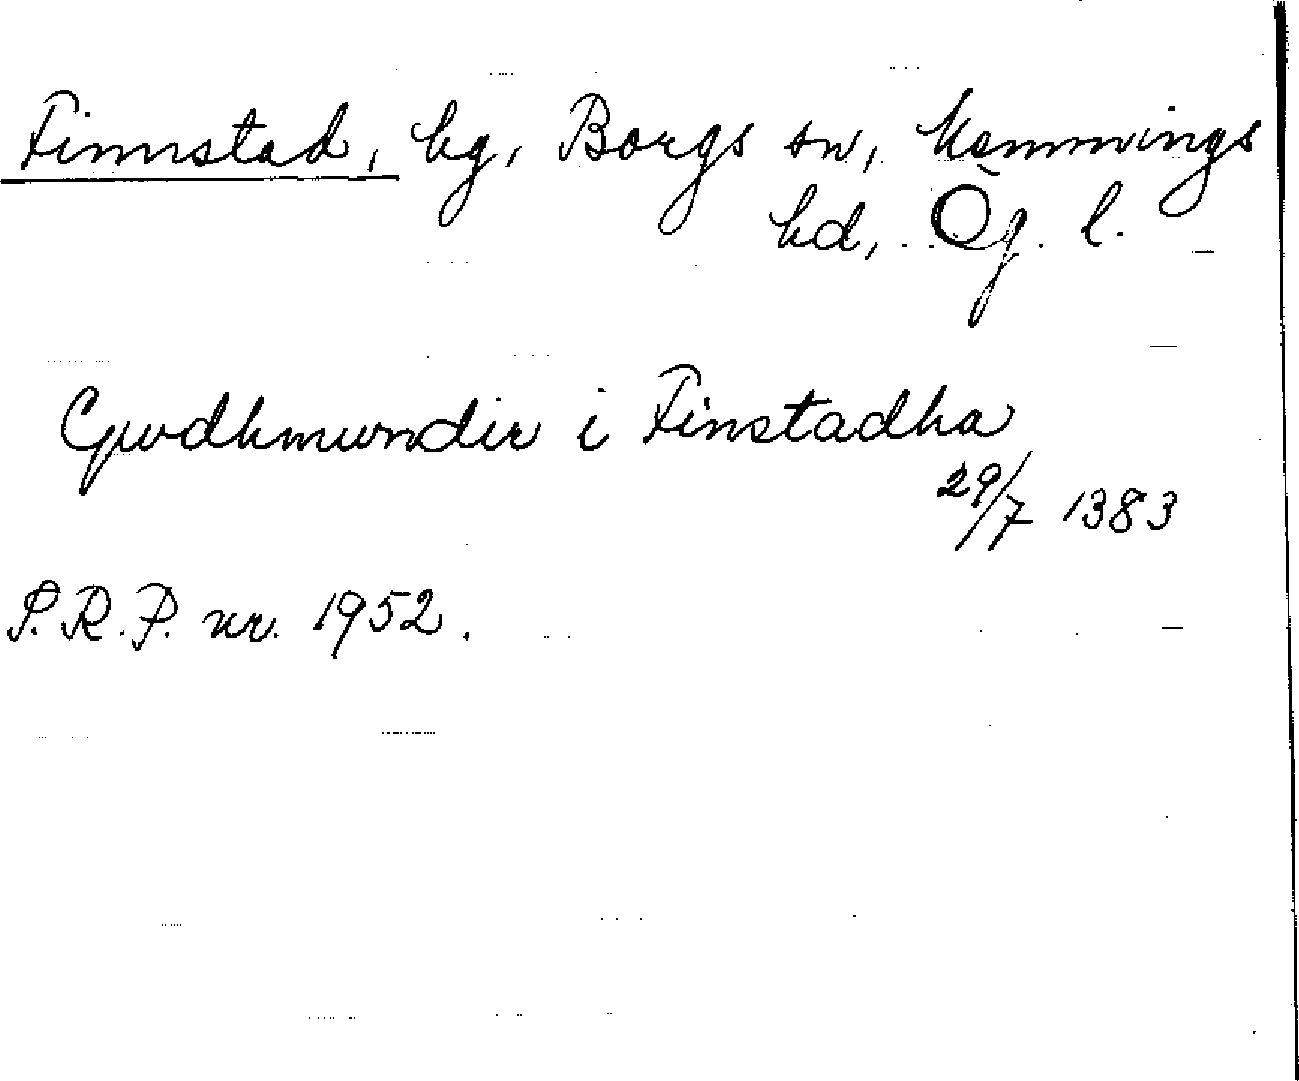 Finnstad, bg, Borgs sn, Memmings
hd, Ög. l.
Gudhmundir i Finstadha
29/7 1383
S.R.P. nr. 1952.